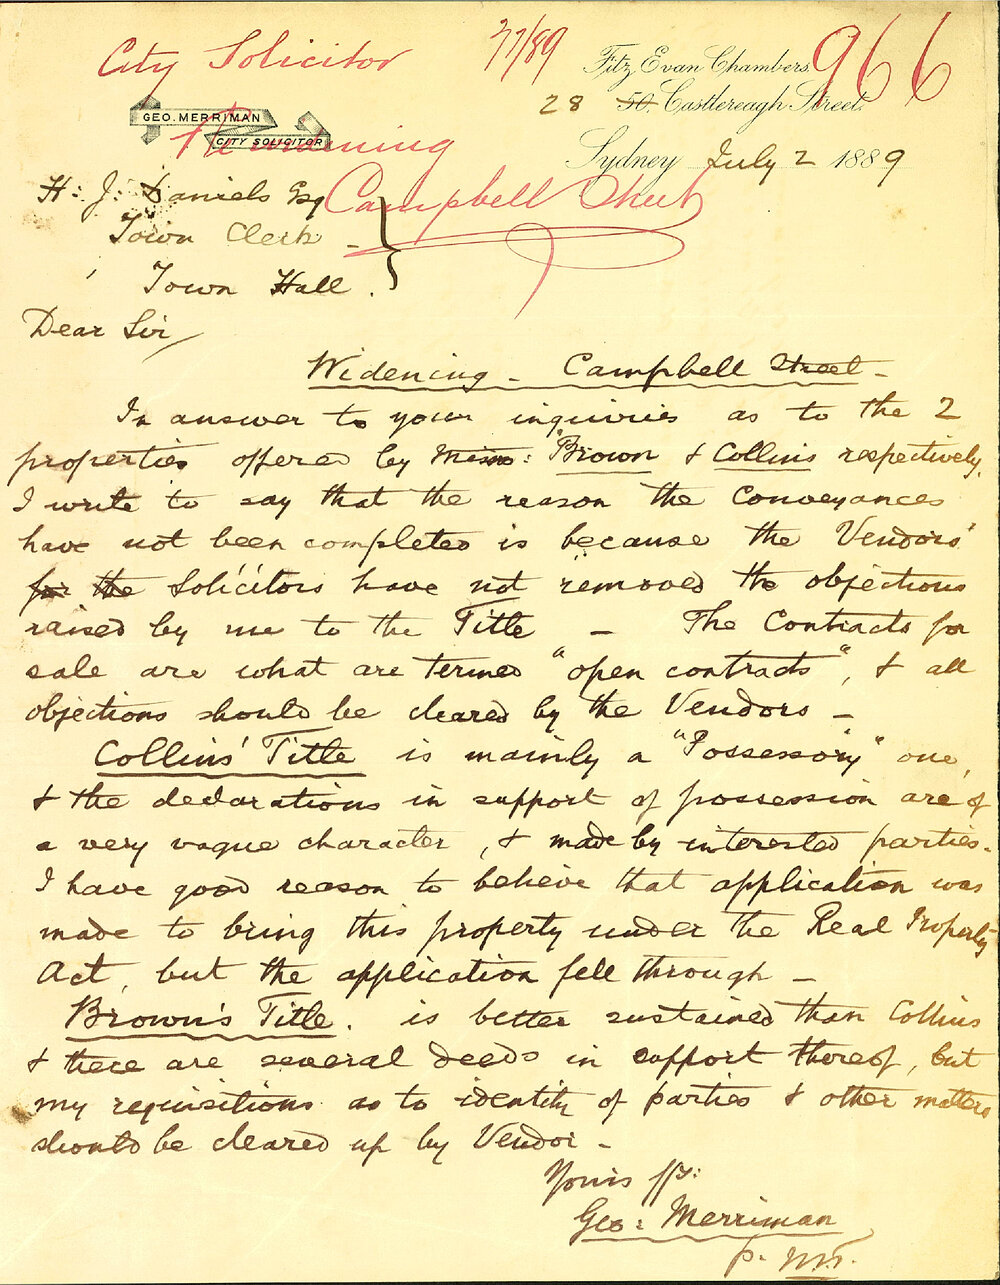 City Solicitor
3/7/89
966
Fitz Evan Chambers
28 50. Castlereagh Street.
GEO. MERRIMAN
CITY SOLICITOR
Sydney July 2 1889
Campbell Street
H: J: Daniels Esq
Town Clerk -
Town Hall.
Dear Sir
Widening - Campbell Street -
In answer to your inquiries as to the 2
properties offered by Messrs: Brown & Collins respectively,
I write to say that the reason the Conveyances
have not been completed is because the Vendors'
for the Solicitors have not removed the objections
raised by me to the Title - The Contracts for
sale are what are termed "open contracts", & all
objections should be cleared by the Vendors -
Collins' Title is mainly a "Possessory" one,
& the declarations in support of possession are of
a very vague character, & made by interested parties.
I have good reason to believe that application was
made to bring this property under the Real Property
Act, but the application fell through -
Brown's Title. is better sustained than Collins
& there are several deeds in support thereof, but
my requisitions as to identity of parties & other matters
should be cleared up by Vendor -
Yours ffy:
Geo: Merriman
p.